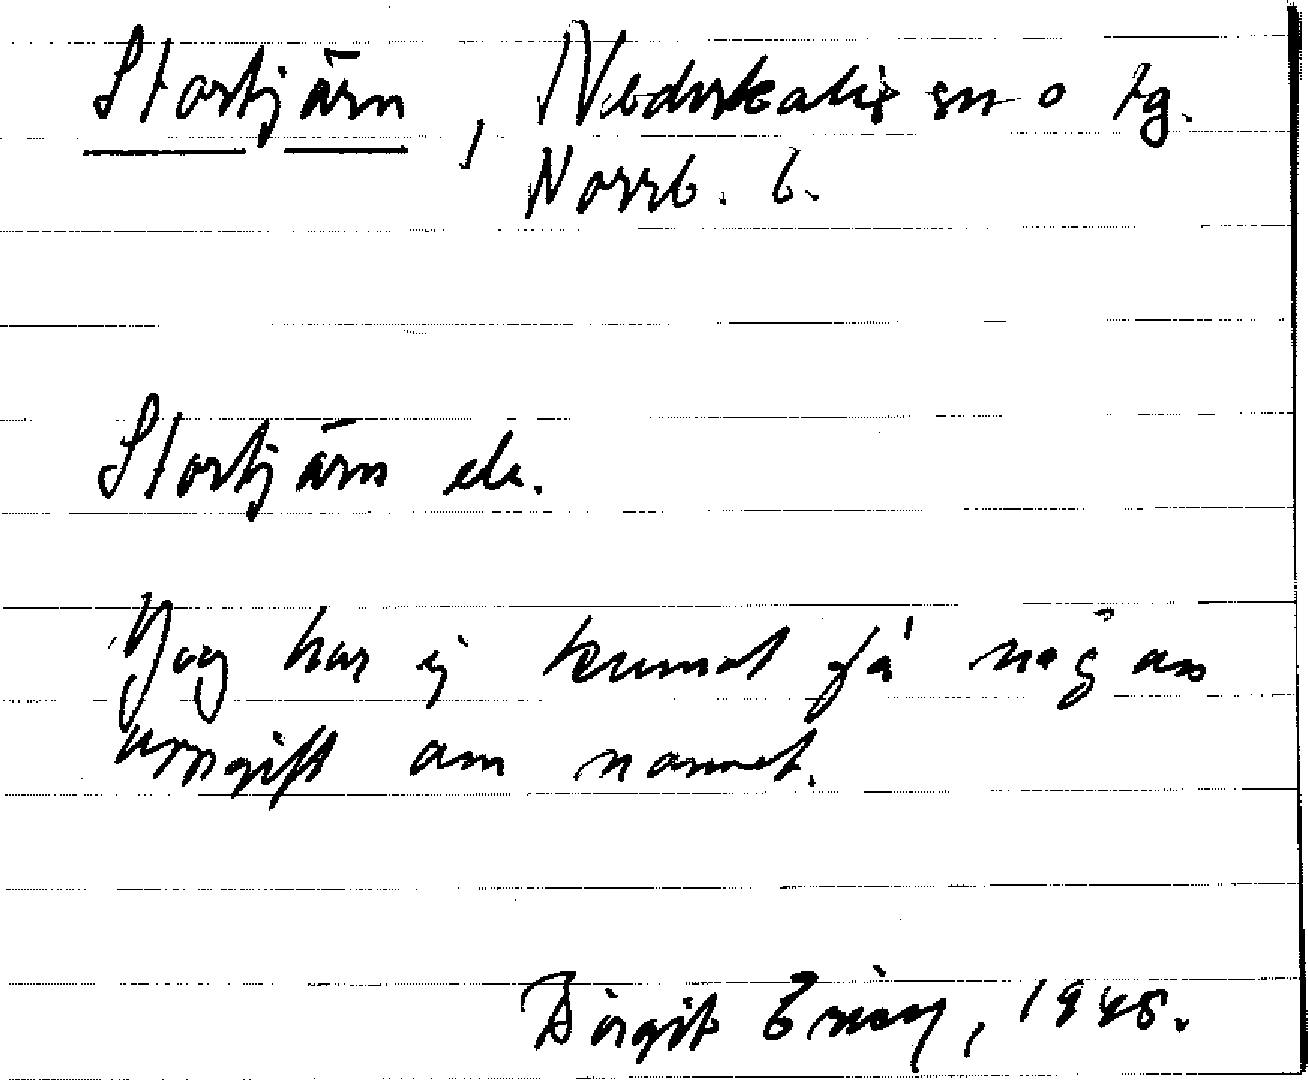 Stortjärn, Nederkalix sn o tg.
Norrb. l.
Stortjärn ek.
Jag har ej kunnat få någon
uppgift om namnet.
Birgit Ericz, 1948.